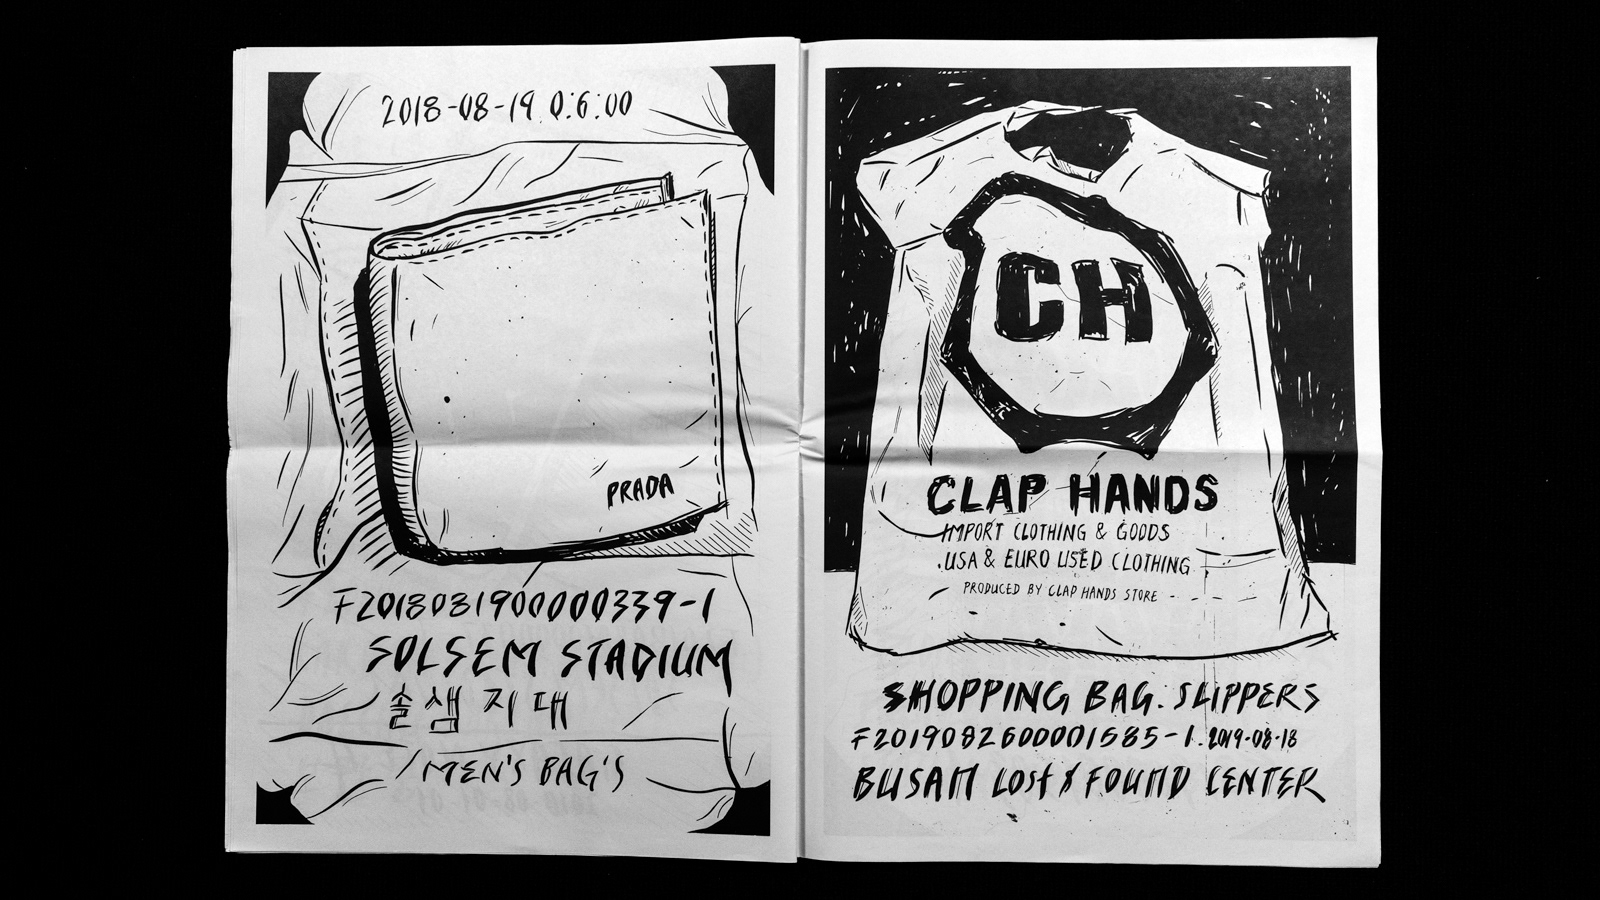 2018-08-19 0:6:00
PRADA
F2018081900000339-1
SOLSEM STADIUM
솔샘지대
MEN'S BAG'S
CH
CLAP HANDS
IMPORT CLOTHING & GOODS
.USA & EURO USED CLOTHING
PRODUCED BY CLAP HANDS STORE
SHOPPING BAG. SLIPPERS
F2019082600001585-1. 2019-08-18
BUSAN LOST & FOUND CENTER